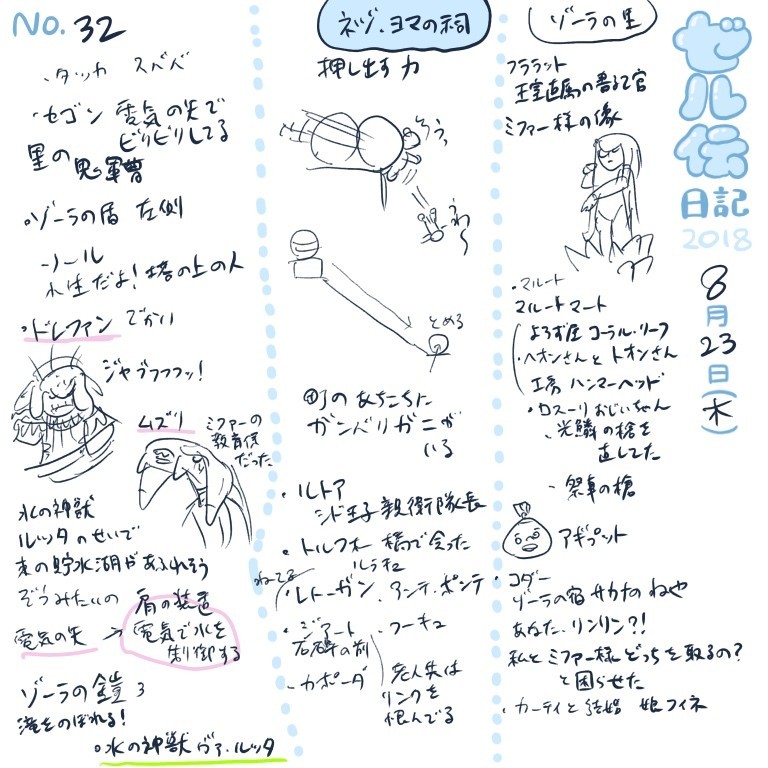 ゼル伝
日記
2018
8月23日(木)
ゾーラの里
フララット
王室直属の番る官
ミファー様の像
・マルート
マルートマート
よろず屋 コーラル・リーフ
・ヘオンさんと トオンさん
工房 ハンマーヘッド
・ロスーリおじいちゃん
光鱗の槍を
直してた
・祭事の槍
アギプット
・コダー
ゾーラの宿 サカナのねや
あなた、リンリン?!
私とミファー様 どっちを取るの?
と困らせた
・カーティと結婚 娘フィネ
ネヅ・ヨマの祠
押し出す力
ろうっ
わ〜
とめる
町のあちこちに
ガンバリガニが
いる
・ルトア
シド王子親衛隊長
・トルフォー 橋で会った
ルラキュ
ねてる
・レトーガン、アンテ、ポンテ
・ジアート
石碑の前
・フーキュ
・カポーダ
老人共は
リンクを
恨んでる
No.32
・タッカ スベベ
・セゴン 電気の矢で
ビリビリしてる
里の鬼軍曹
・ゾーラの盾 左側
・ノール
水生だよ!塔の上の人
・ドレファン でかい
ジャブフフフッ!
ムズリ
ミファーの
教育係
だった
水の神獣
ルッタのせいで
東の貯水湖があふれそう
ぞうみたいの
肩の装置
電気の矢 → 電気で水を
制御する
ゾーラの鎧
滝をのぼれる!
・水の神獣 ヴァ・ルッタ